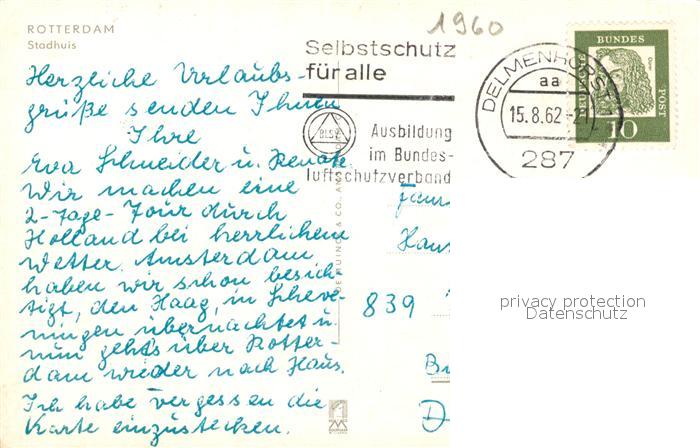 ROTTERDAM
Stadhuis
1960
Selbstschutz
für alle
BLSV
Ausbildung
im Bundes-
luftschutzverband
DELMENHORST
aa
15.8.62-2
287
DEUTSCHE
BUNDES
POST
Dürer
10
Herzliche Urlaubs-
grüße senden Ihnen
Ihre
Eva Schneider u. Renate.
Wir machen eine
2-Tage-Tour durch
Holland bei herrlichem
Wetter. Amsterdam
haben wir schon besich-
tigt, den Haag, in Scheve-
ningen übernachtet u.
nun geht's über Rotter-
dam wieder nach Haus.
Ich habe vergessen die
Karte einzustecken.
Fam
Han
839
D
privacy protection
Datenschutz